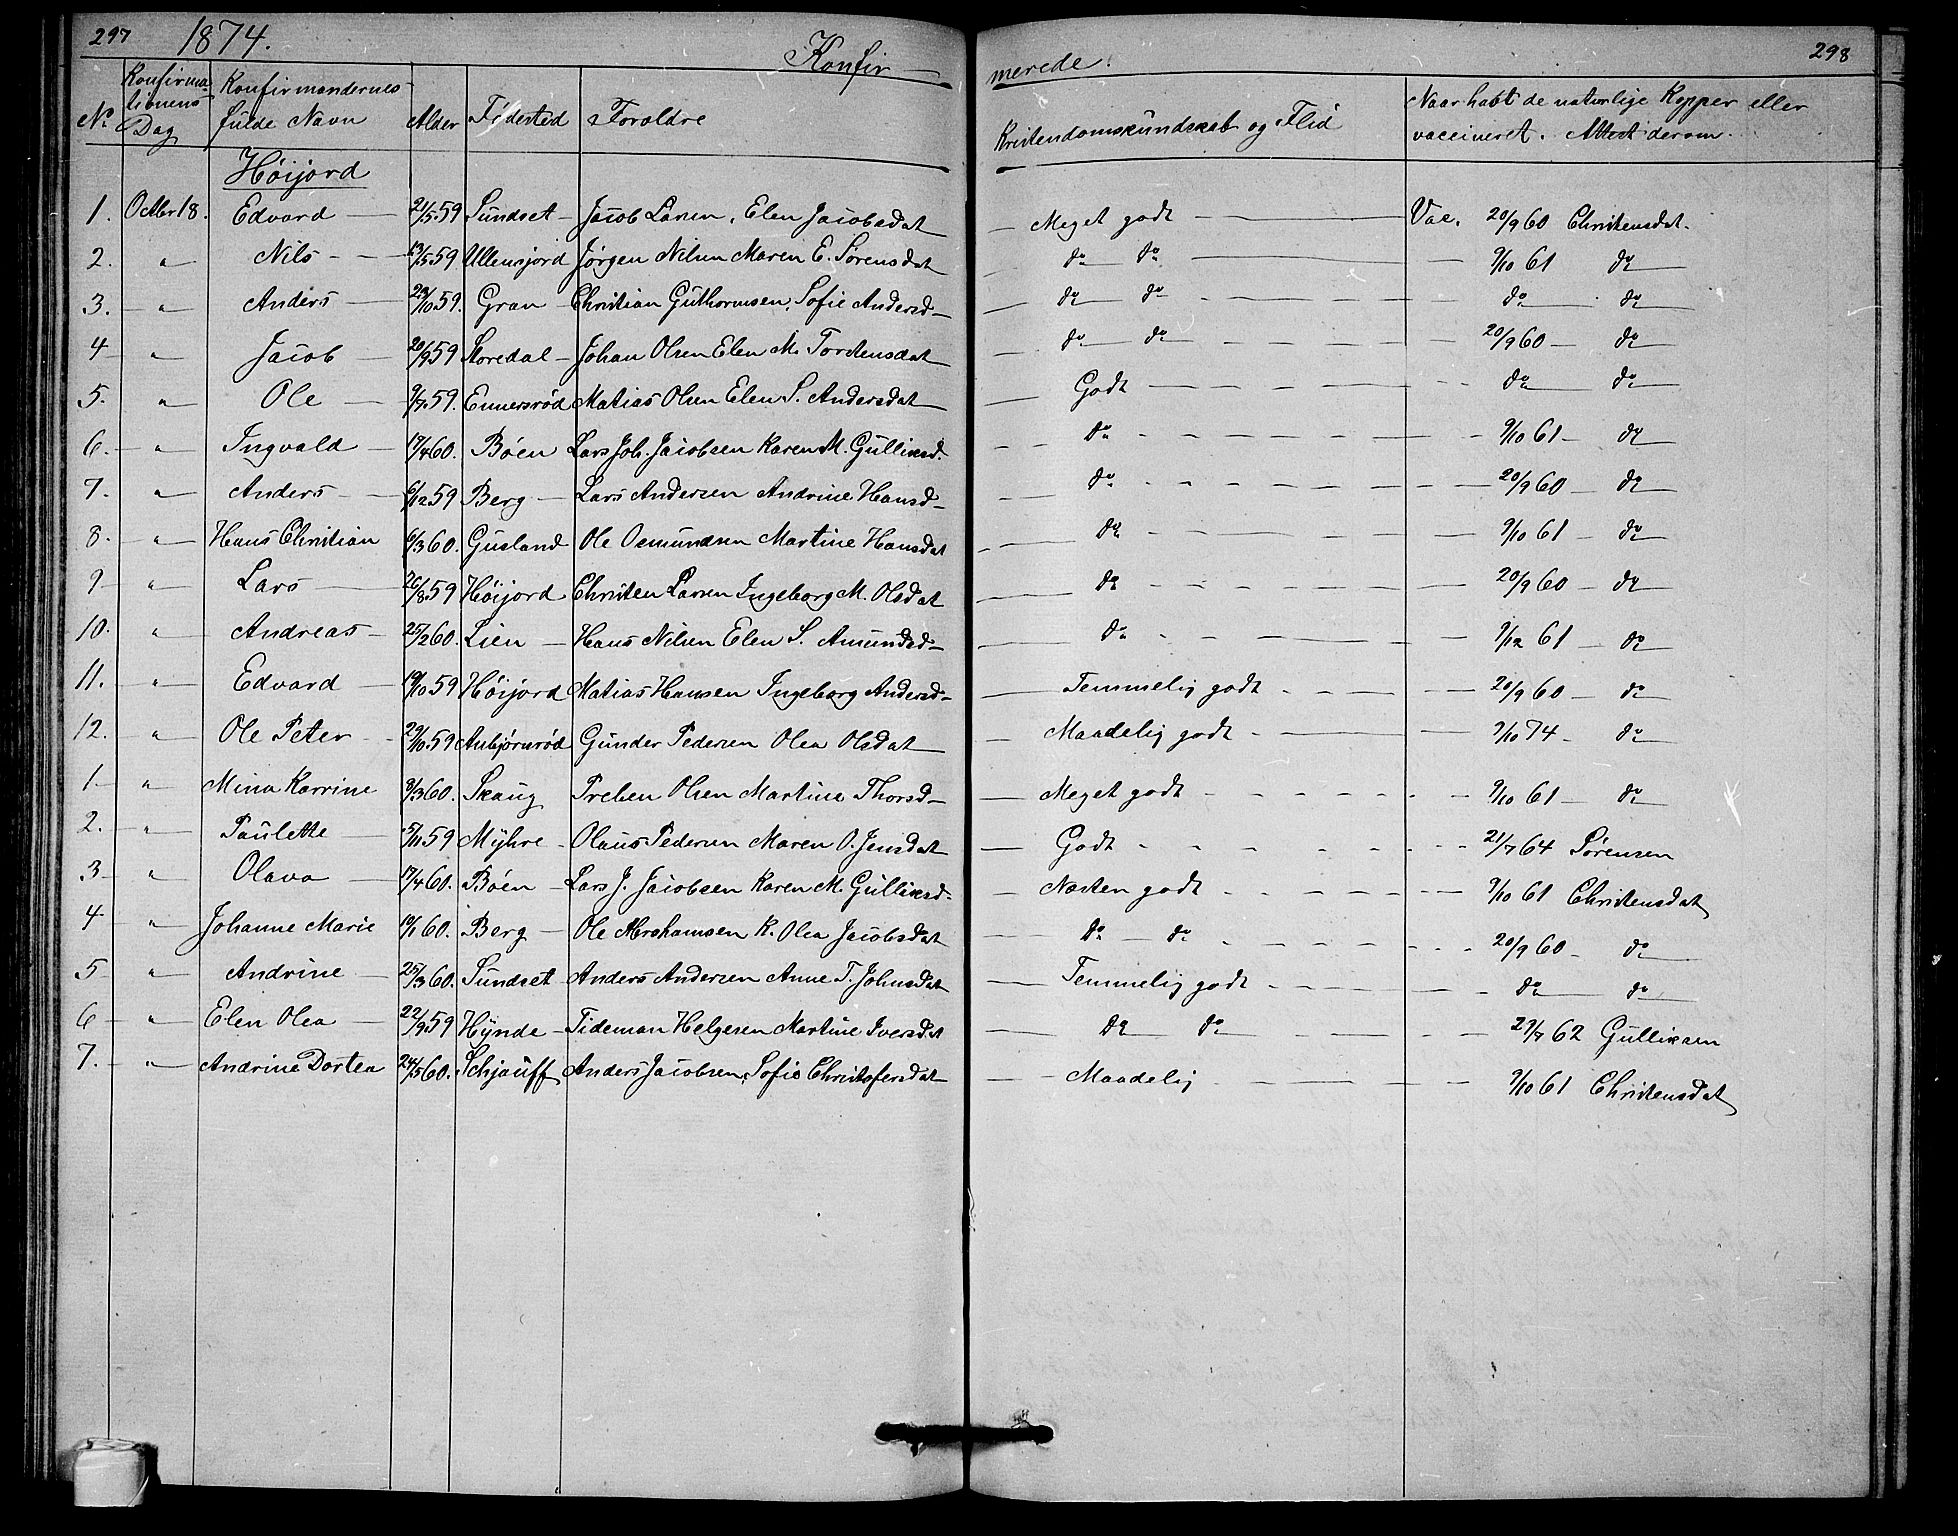 297 1874. Konfir
merede. 298
No Konfirmationens Dag Konfirmandernes fulde Navn Alder Fødested Foroldre Kristendomskundskab og Flid Naar havt de naturlige Kopper eller vaccineret. Attest derom.
Høijord
1. Octbr 18. Edvard 21/5 59 Sundset Jacob Larsen, Elen Jacobsdat Meget godt Vac. 20/9 60 Christensdat.
2. " Nils 13/5 59 Ullensjord Jørgen Nilsen Maren E. Sørensdat do do 9/10 61 do
3. " Anders 29/10 59. Gran Christian Guthormsen, Sofie Andersd do do do do
4 " Jacob 20/9 59 Storedal Johan Olsen Elen M. Torstensdat do do 20/9 60 do
5. " Ole 9/7 59. Ennersrød Matias Olsen Elen S. Andersdat Godt do do
6. " Ingvald 17/4 60. Bøen Lars Joh. Jacobsen Karen M. Gulliksd. do 9/10 61 do
7. " Anders 6/12 59 Berg Lars Andersen Andrine Hansd do 20/9 60 do
8. " Hans Christian 6/3 60. Gusland Ole Osmundsen Martine Hansdat do 9/10 61 do
9 " Lars 26/8 59 Høijord Christen Larsen Ingeborg M. Olsdat do 20/9 60 do
10. " Andreas 25/2 60. Lien Hans Nilsen Elen S. Amundsd do 9/12 61 do
11. " Edvard 19/10 59 Høijord Matias Hansen Ingeborg Andersd Temmelig godt 20/9 60 do
12. " Ole Peter 29/10 59 Anbjørnrød Gunder Pedersen Olea Olsdat Maadelig godt 9/10 74 do
1 " Mina Karrine 9/3 60. Skaug Preben Olsen Martine Thorsd Meget godt 9/10 61 do
2. " Paulette 5/11 59 Myhre Olaus Pedersen Maren O. Jensdat Godt 21/7 64 Sørensen
3 " Olava 17/4 60. Bøen Lars J. Jacobsen Karen M. Gulliksd. Næsten godt 9/10 61 Christensdat
4 " Johanne Marie 19/1 60. Berg Ole Abrahamsen K. Olea Jacobsdat do do 20/9 60 do
5 " Andrine 25/3 60. Sundset Anders Andersen Anne T. Johnsdat Temmelig godt do do
6 " Elen Olea 22/9 59 Hynde Tideman Helgesen Martine Iversdat do do 29/7 62 Gulliksen
7. " Andrine Dortea 24/5 60. Schjauff Anders Jacobsen, Sofie Christofersdat Maadelig 9/10 61 Christensdat